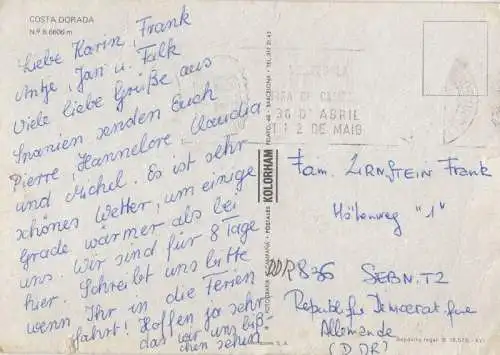 COSTA DORADA
N.º B 6606 m
Liebe Karin, Frank
Antje, Jan u. Falk
Viele liebe Grüße aus
Spanien senden Euch
Pierre Hannelore Claudia
und Michel. Es ist sehr
schönes Wetter, um einige
Grade wärmer als bei
uns. Wir sind für 8 Tage
hier. Schreibt uns bitte
wenn Ihr in die Ferien
fährt! Hoffen ja sehr
das wir uns biß
chen sehen
POSTALES KOLORHAM
BARCELONA - TEL.
D'ABRIL
2 DE MAIG
Fam. ZIRNSTEIN Frank
Höhenweg "1"
DDR 836 SEBNITZ
Republique Democratique
Allemande
(DDR)
Depósito legal B.